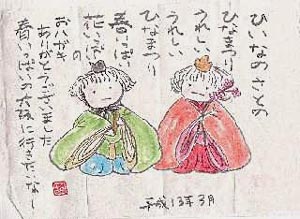 ひいなの さとの
ひなまつり
うれしい
うれしい
ひなまつり
春いっぱい
花いっぱい
の
おハガキ
ありがとうございました
春いっぱいの
に行きたいなー
平成13年3月